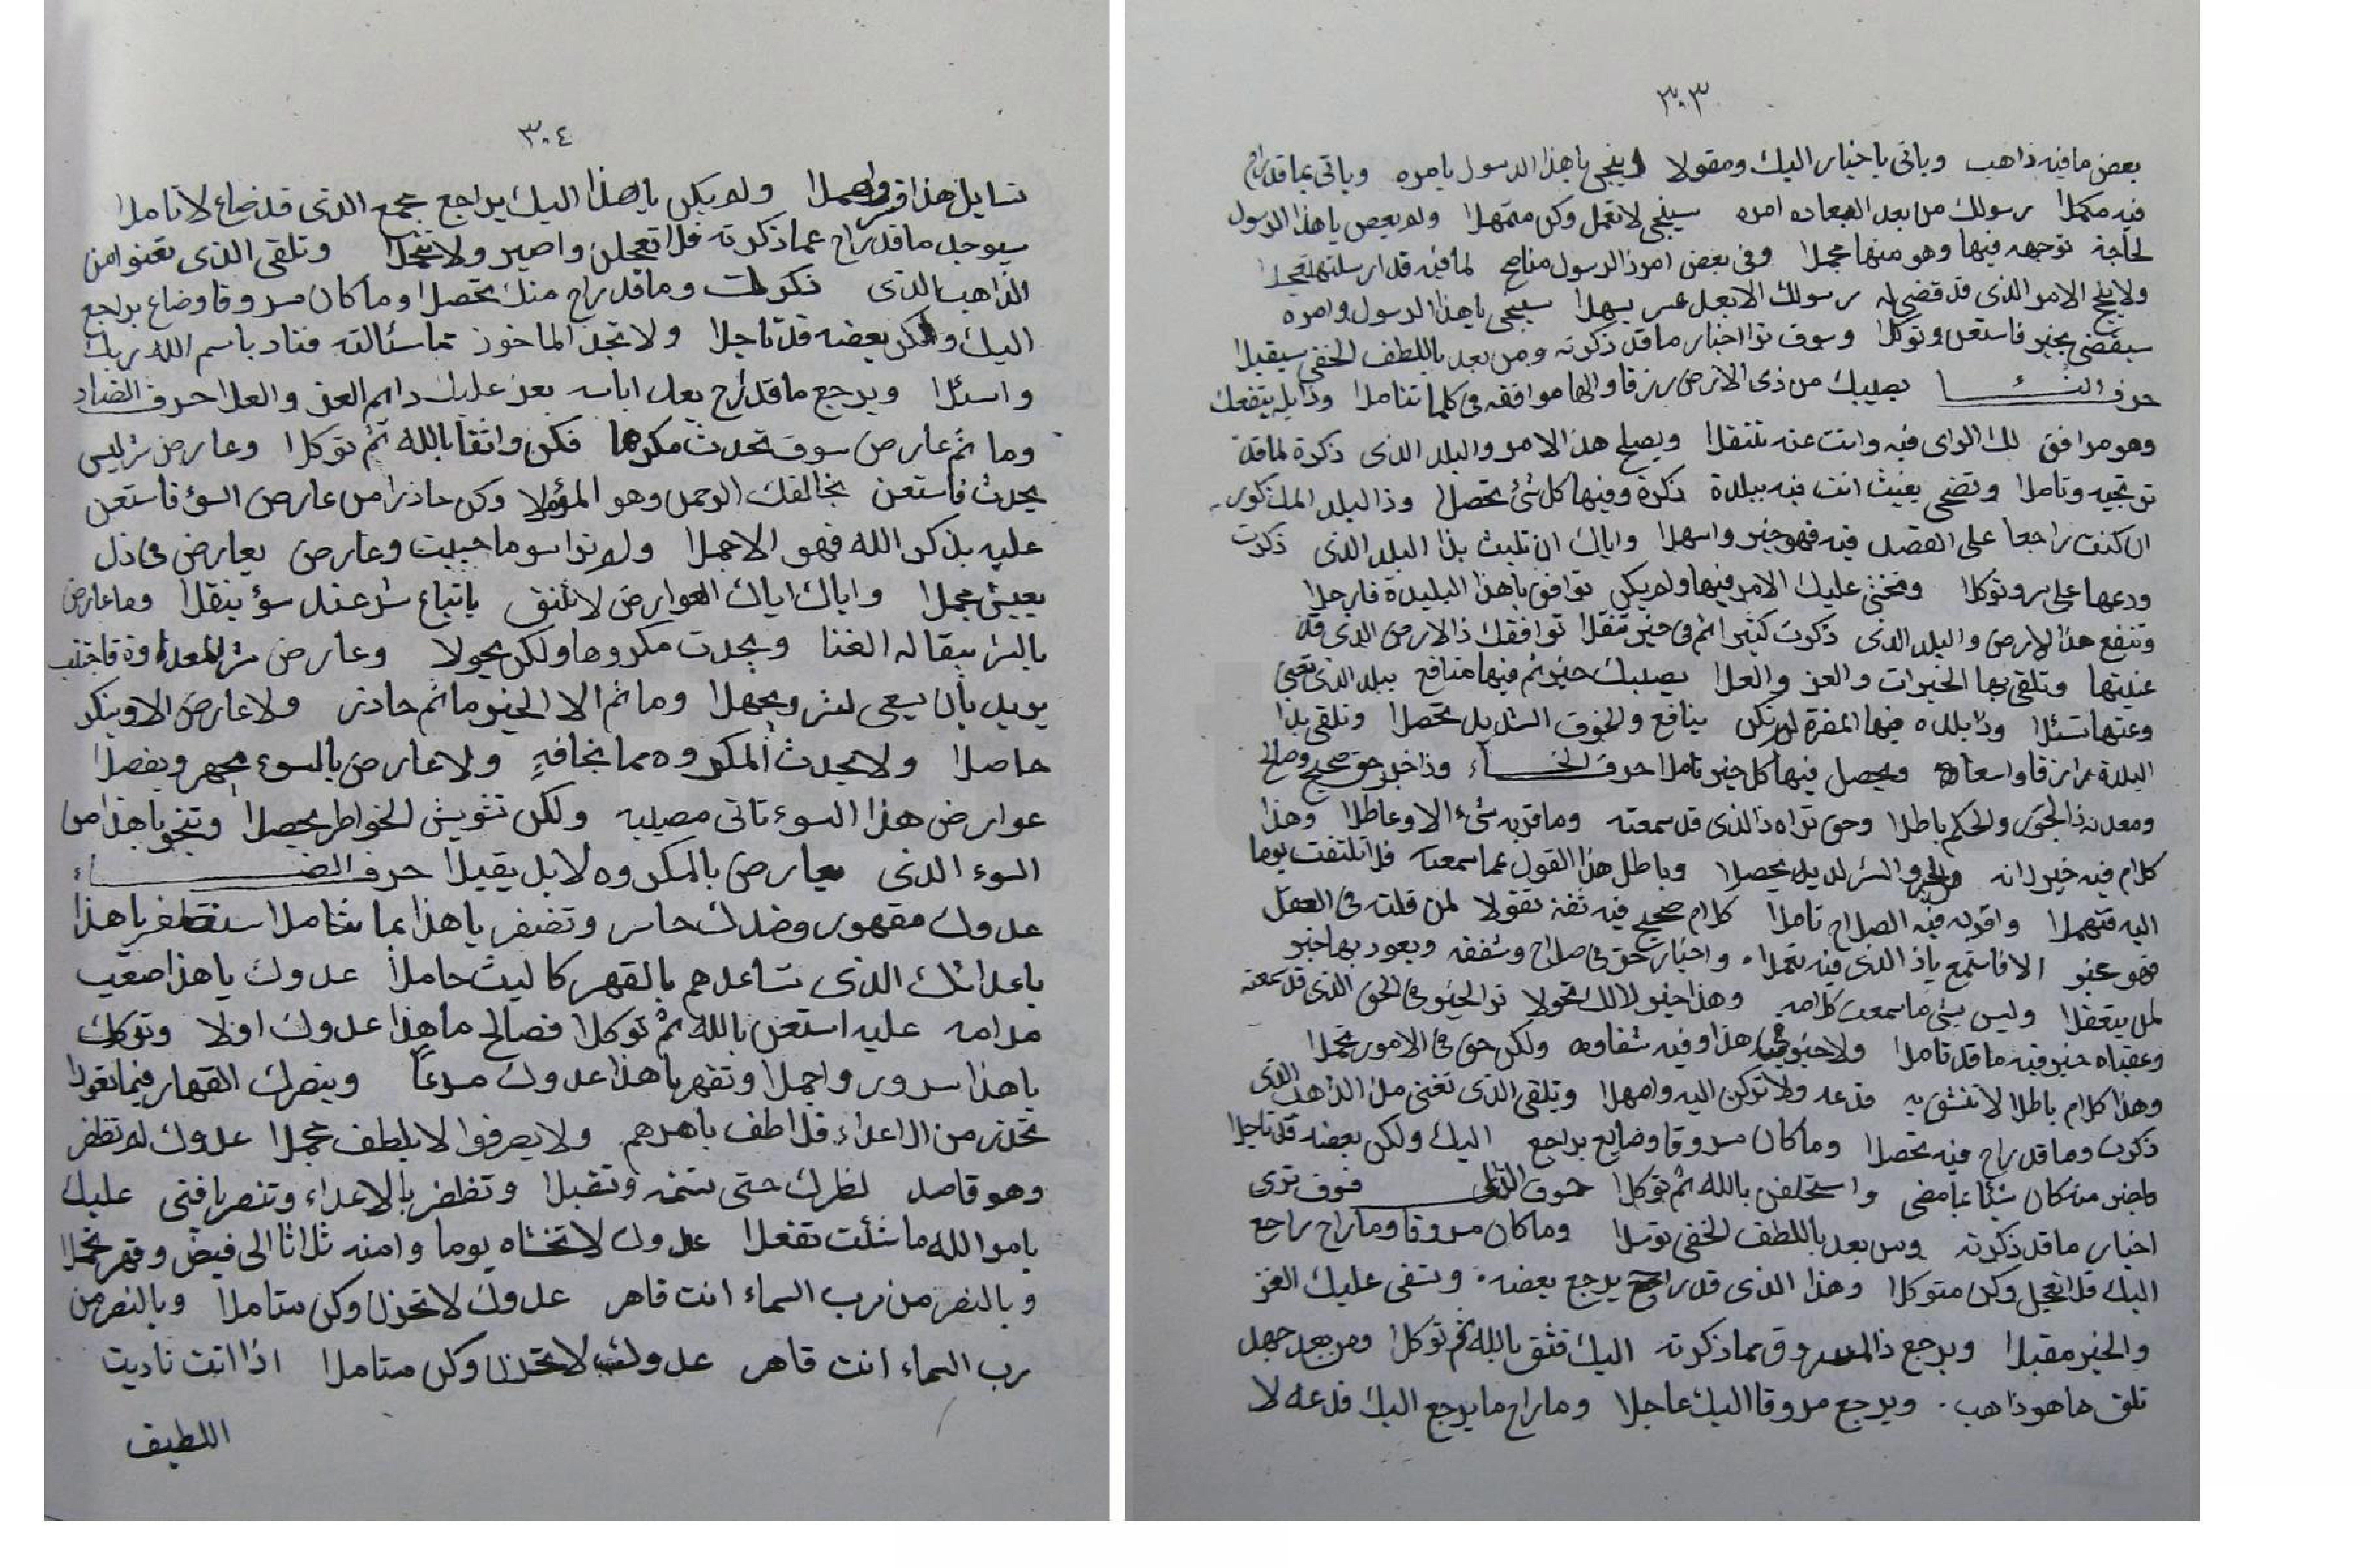 ٣٠٣
بعض ما فيه ذاهب وياتي باخبار اليك ومقولا وينجي يا هذا الرسول بامره وياتي بما قد رام
فيه مكملا رسولك من بعد البعاده امره سينجي لا تعمل وكن متمهلا ولم يعص يا هذا الرسول
لحاجة توجهه فيها وهو منها عجلا وفي بعض امور ذا الرسول مناصح لما فيه قد ارسلتها
ولا ينج الامر الذي قد قضي له رسولك الا بعل عسر يسهلا سينجي يا هذا الرسول وامره
سيقضي بخير فاستعن وتوكلا وسوف ترا اخبار ما قد ذكرته ومن بعد باللطف الخفي سيقبلا
حرف الثاء يصيبك من ذي الارض رزقا وانها موافقه في كلما تتاملا وذا يله ينفعك
وهو موافق لك الراي فيه وانت عنه تنتقلا ويصلح هذا الامر والبلد الذي ذكرة لما قد
ترتجيه وتاملا وتضحى بعيث انت فيه ببلدة ذكرة وفيها كل شئ تحصلا وذا البلد المذكور
ان كنت راجعا على الفصد فيه فهو خير واسهلا واياك ان تلبث بذا البلد الذي ذكرت
ودعها على بر وتوكلا ومخشى عليك الامر فيها ولم يكن توافق يا هذا البليدة فارحلا
وتنفع هذا الارض والبلد الذي ذكرت كثيرا ثم في خير تنقلا توافقك ذا الارض الذي قد
عنيتها وتلقى بها الخيرات والعز والعلا يصيبك خير ثم فيها منافع ببلد الذي تعني
وعنها تسئلا وذا بلده فيها المضرة لم تكن ينافع والخوف الشديد تحصلا وتلقى بذا
البلدة رزقا واسعا ويحصل فيها كل خير تاملا حرف الخاء وذا خبر حق صحيح وصالح
ومعدنه ذا الحق والحكم باطلا وحق تراه ذا الذي قد سمعته وما قد به شيء الا وعاطلا وهذا
كلام فيه خير لانه والخير والشر لديه يحصلا وباطل هذا القول عما سمعته فلا تلتفت يوما
اليه فتهملا واقد به فيه الصلاح تاملا كلام صحيح فيه ثقة تقولا لمن قلت في العقل
فهو عنو الا فاستمع ياذ الذي فيه تحملا واخبار حق في صلاح وشفقه ويعود بها خير
لمن يتعقلا وليس بشي ما سمعت كلامه وهذا خير لا لك تحولا ترا الخير في الحق الذي قد سمعته
وعقباه خير فيه ما قد تاملا ولا خير في هذا وفيه شقاوه ولكن حق في الامور تحملا
وهذا كلام باطلا لا تنشق به فدعه ولا تركن اليه وامهلا وتلقى الذي تعني من الذاهب الذي
ذكرت وما قد راح فيه تحصلا وما كان مسروقا وضايع يراجع اليك ولكن بعضه قد تاجلا
واستحلفن بالله ثم توكلا حرف الذال فسوف ترى
اخبار ما قد ذكرته ومن بعد باللطف الخفي توسلا وما كان مسروقا وما راح راجع
اليك فلا تعجل وكن متوكلا وهذا الذي قد راح يرجع بعضه وتنفى عليك العز
والخير مقبلا ويرجع ذا المسروق مما ذكرته اليك فثق بالله ثم توكلا ومن بعد جهل
تلق ما هو ذاهب ويرجع مسروقا اليك عاجلا وما راح ما يرجع اليك فدعه لا
٣٠٤
تسايل هذا وامهلا ولم يكن يا هذا اليك يراجع جمع الذي قد ضاع لا تاملا
سيوجد ما قد راح عما ذكرته فلا تعجلن واصبر ولا تعجلا وتلقى الذي تعنوا من
الذاهب الذي ذكرت وما قد راح منك تحصلا وما كان مسروقا وضاع يراجع
اليك ولكن بعضه قد تاجلا ولا تجد الماخوذ مما سئالته فناد باسم الله ربك
واسئلا ويرجع ما قد راح بعد ايابه يعد عليك دايم العز والعلا حرف الضاد
وما ثم عارض سوف تحدث مكرها فكن واثقا بالله ثم توكلا وعارض شر ليس
يحدث فاستعن بخالقك الرحمن وهو المؤملا وكن حاذرا من عارض السؤ فاستعن
عليه بذكر الله فهو الاجملا ولم ترا سو ما حييت وعارض يعارض في ذل
بعيش عجلا واياك اياك العوارض لا تثق باتباع شر عند سؤ ينقلا وما عارض
بالشر يبقا له الغنا ويحدث مكروها ولكن يحولا وعارض شر المعداوة فاجتنب
يريد بأن يسعى لشر ويجهلا وما ثم الا الخير ما ثم حاذر ولا عارض الا وينكر
حاصلا ولا يحدث المكروه مما تخافه ولا عارض بالسوء يجهر ويفصلا
عوارض هذا السوء تاتي مصيبه ولكن تشويش الخواطر يحصلا وتنجو يا هذا من
السوء الذي يعارض بالمكروه لا بل يقبلا حرف الضاء
عدوك مقهور وضدك خاسر وتضفر يا هذا بما تتاملا ستظفر يا هذا
باعدائك الذي تساعدهم بالقهر كاليث حاملا عدوك يا هذا صعيب
مرامه عليه استعن بالله ثم توكلا فصالح ما هذا عدوك اولا وتوكل
يا هذا سرور واجملا وتقهر يا هذا عدوك مسرعاً وينصرك القهار فيما تقولا
تحذر من الاعداء فلاطف باهدهم ولا يصرفوا لا بلطف عجلا عدوك لم تظفر
وهو قاصد لظرك حتى تنتمه وتقبلا وتظفر بالاعداء وتنصر افتى عليك
بامر الله ما شئت تفعلا عدوك لا تخشاه يوما وامنه ثلاثا الى فيض وقهر تحملا
وبالنصر من رب السماء انت قاهر عدوك لا تحزن وكن متاملا وبالنصر من
رب السماء انت قاهر عدوك لا تحزن وكن متاملا اذا انت ناديت
اللطيف